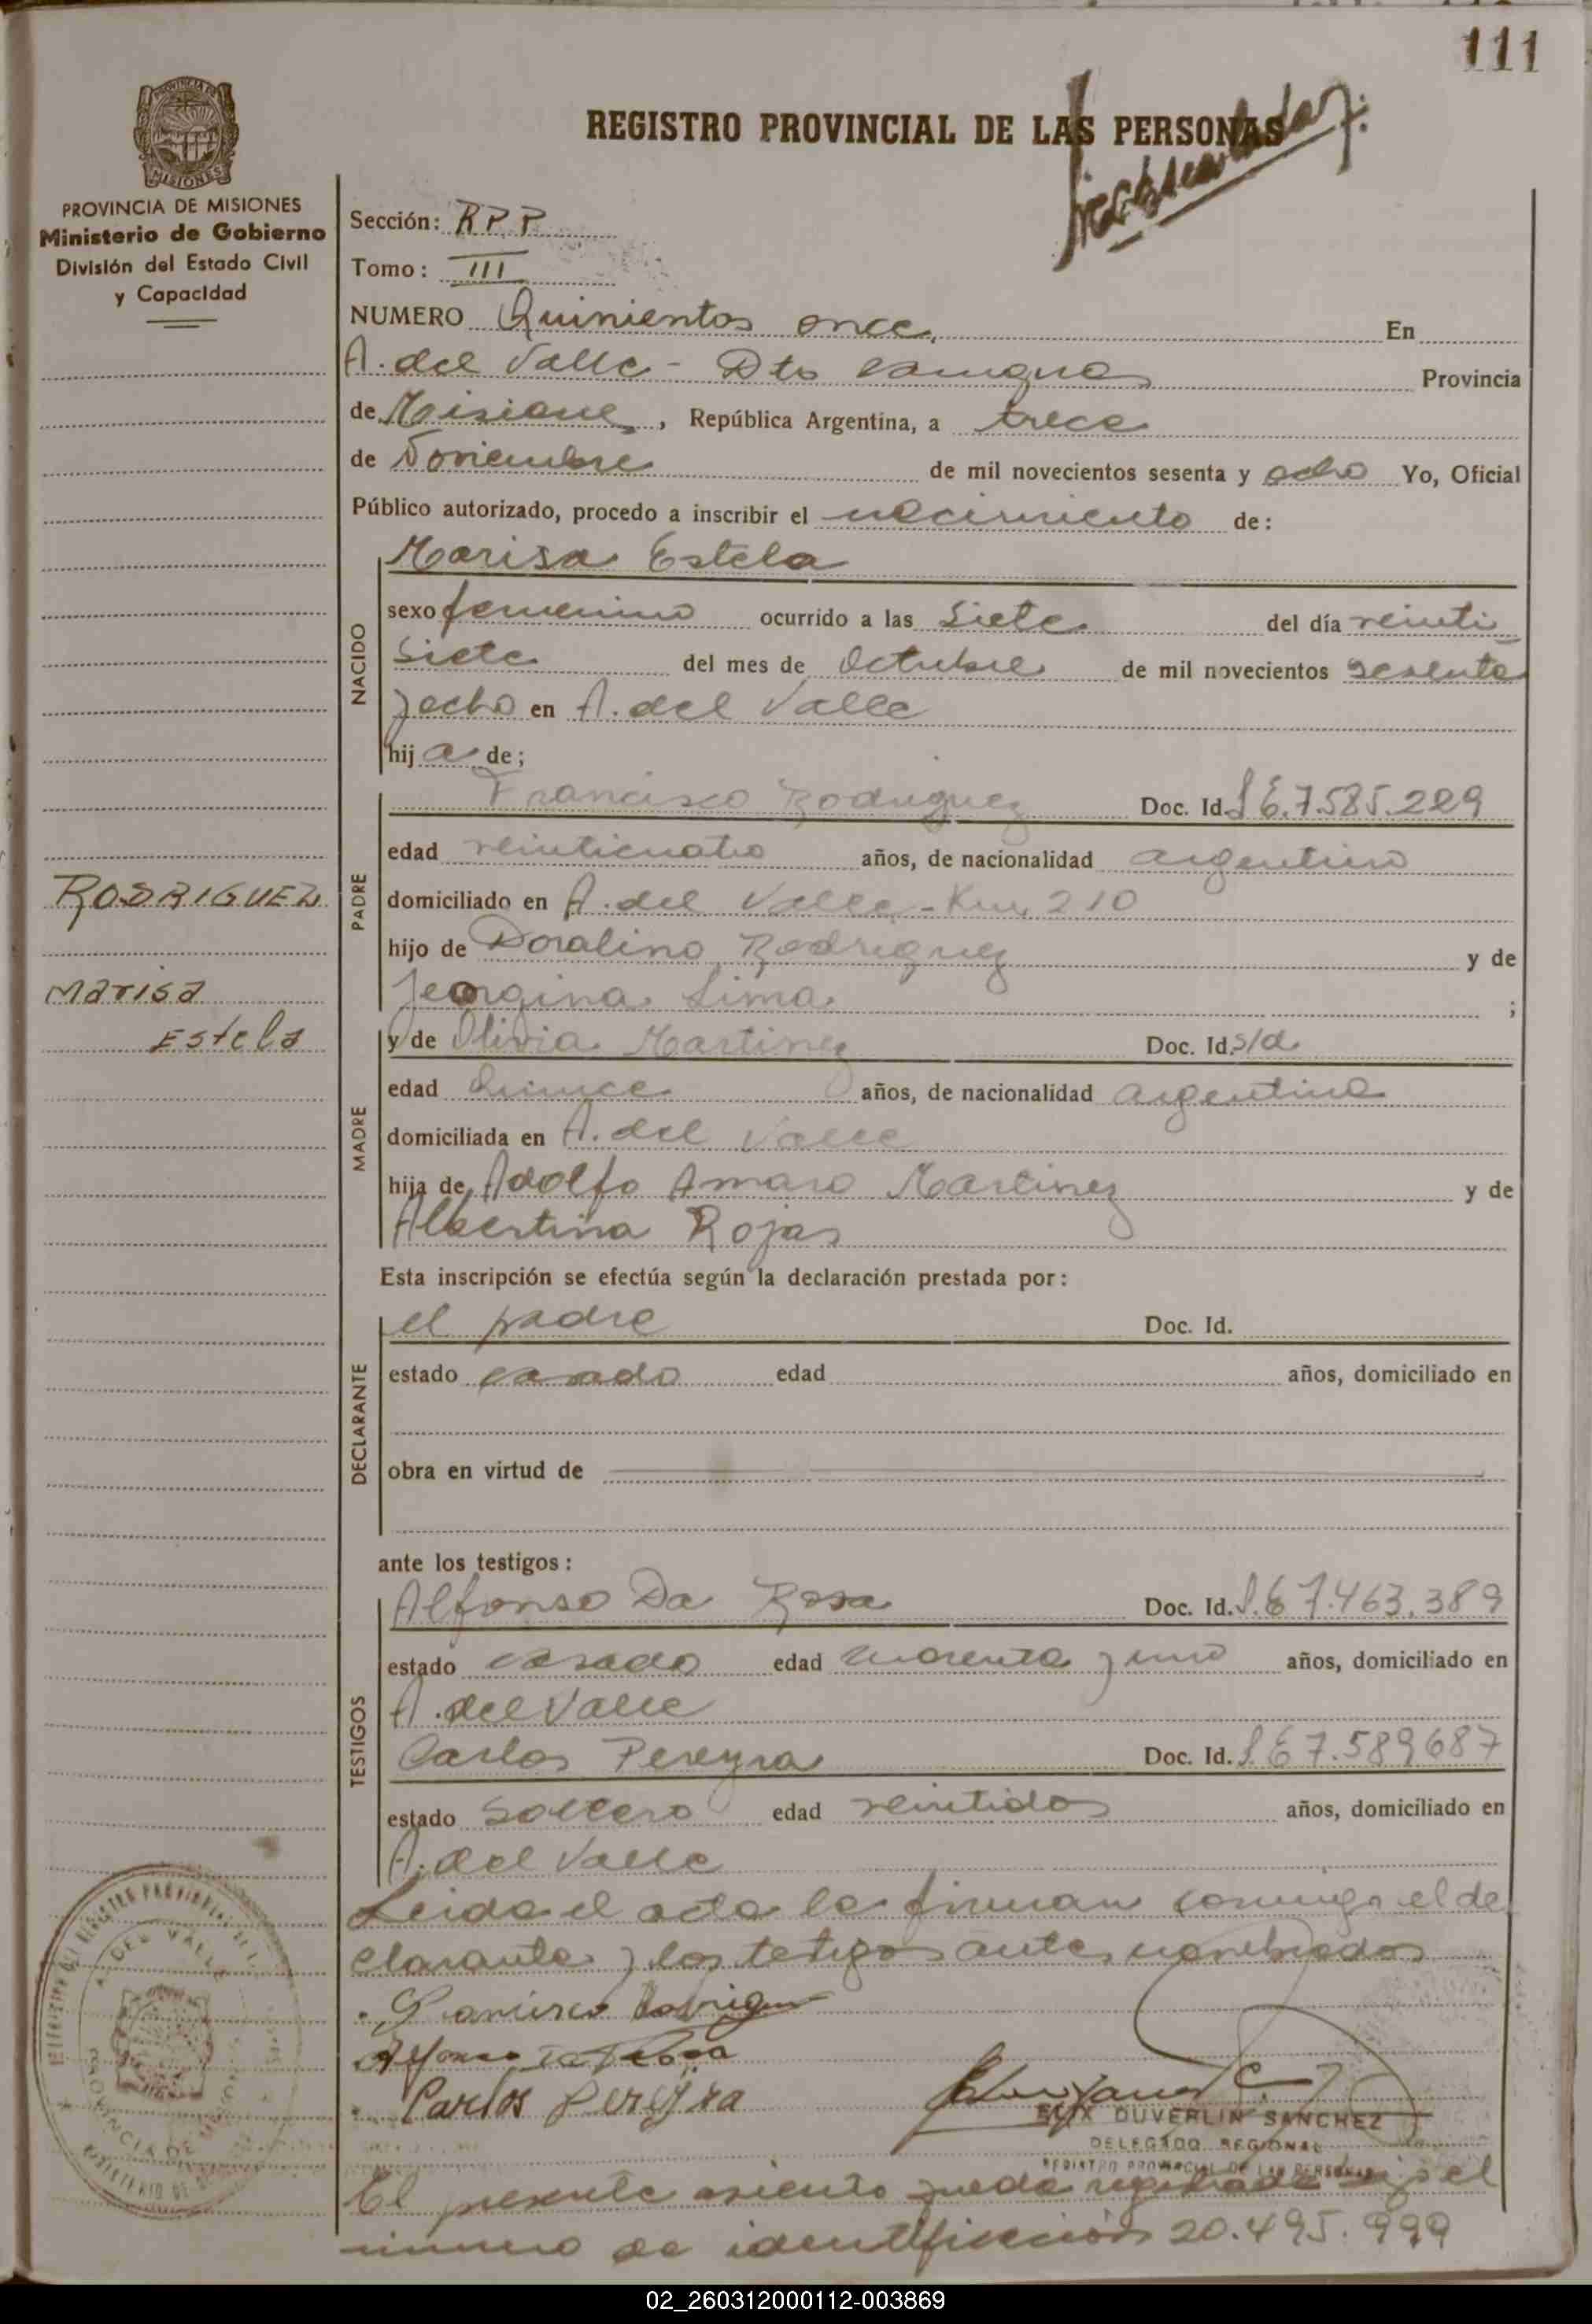 111
REGISTRO PROVINCIAL DE LAS PERSONAS
PROVINCIA DE MISIONES
Ministerio de Gobierno
División del Estado Civil
y Capacidad
Sección: R P P
Tomo: III
NUMERO Quinientos once, En
A. del Valle - Dto Cainguas Provincia
de Misiones, República Argentina, a trece
de Noviembre de mil novecientos sesenta y ocho Yo, Oficial
Público autorizado, procedo a inscribir el nacimiento de:
NACIDO
Marisa Estela
sexo femenino ocurrido a las Siete del día veinti
siete del mes de Octubre de mil novecientos sesenta
y ocho en A. del Valle
hija de;
PADRE
Francisco Rodriguez Doc. Id. L E 7.585.229
edad veinticuatro años, de nacionalidad argentino
domiciliado en A. del Valle - Km 210
hijo de Doralino Rodriguez y de
Jeorgina Lima ;
RODRIGUEZ
Marisa
Estela
MADRE
y de Olivia Martinez Doc. Id. s/d.
edad Quince años, de nacionalidad argentina
domiciliada en A. del Valle
hija de Adolfo Amaro Martinez y de
Albertina Rojas
Esta inscripción se efectúa según la declaración prestada por:
DECLARANTE
el padre Doc. Id.
estado casado edad años, domiciliado en
obra en virtud de
ante los testigos:
TESTIGOS
Alfonso Da Rosa Doc. Id. L.E 7.463.389
estado casado edad cuarenta y uno años, domiciliado en
A. del Valle
Carlos Pereyra Doc. Id. L.E 7.589687
estado Soltero edad veintidos años, domiciliado en
A. del Valle
Leida el acta la firman conmigo el de
clarante y los testigos antes nombrados
Francisco Rodrigue
Alfonso Da Rosa
Carlos Pereyra
DUVERLIN SANCHEZ
DELEGADO REGIONAL
REGISTRO PROVINCIAL DE LAS PERSONAS
A. DEL VALLE
PROVINCIA DE MISIONES
El presente asiento queda registrado bajo el
numero de identificación 20.495.999
02_260312000112-003869